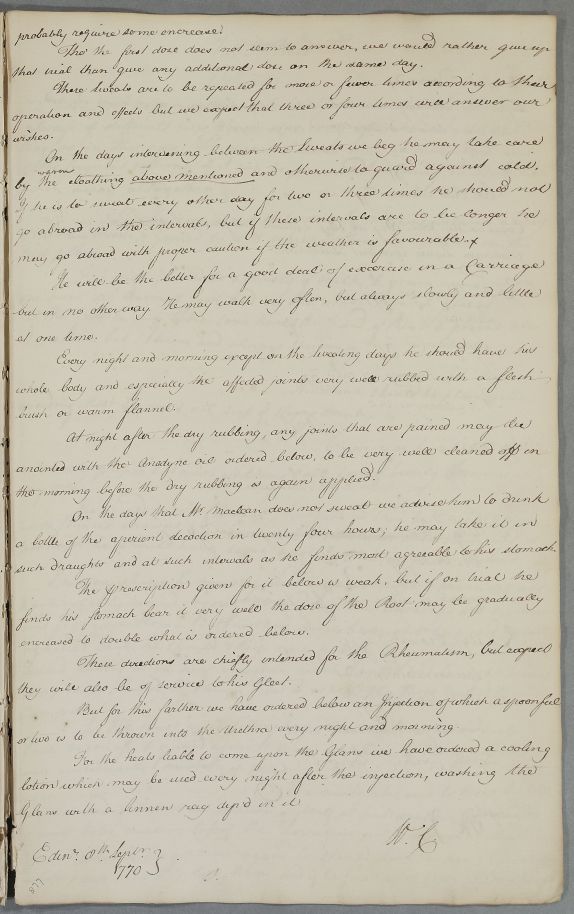 probably require some encrease.
Tho' the first dose does not seem to answer, we would rather give up
that trial than give any additional dose on the same day.
These sweats are to be repeated for more or fewer times according to their
operation and effects but we expect that three or four times will answer our
wishes.
On the days intervening between the Sweats we beg he may take care
by the warm cloathing above mentioned and otherwise to guard against cold.
If he is to sweat every other day for two or three times he should not
go abroad in the intervals, but if these intervals are to be longer he
may go abroad with proper caution if the weather is favourable. x
He will be the better for a good deal of exercise in a Carriage
but in no other way. He may walk very often, but always slowly and little
at one time.
Every night and morning except on the sweating days he should have his
whole body and especially the affected joints very well rubbed with a flesh
brush or warm flannel.
At night after the dry rubbing, any joints that are pained may be
anointed with the Anodyne oil ordered below, to be very well cleaned off in
the morning before the dry rubbing is again applied.
On the days that Mr. Maclean does not sweat we advise him to drink
a bottle of the aperient decoction in twenty four hours; he may take it in
such draughts and at such intervals as he finds most agreeable to his stomach.
The prescription given for it below is weak, but if on trial he
finds his stomach bear it very well the dose of the Root may be gradually
encreased to double what is ordered below.
These directions are chiefly intended for the Rheumatism, but expect
they will also be of service to his Gleet.
But for this farther we have ordered below an Injection of which a spoonful
or two is to be thrown into the Urethra every night and morning.
For the heats liable to come upon the Glans we have ordered a cooling
lotion which may be used every night after the injection, washing the
Glans with a linnen rag dip'd in it
W. C
Edinr. 8th. Septr.
1770
877